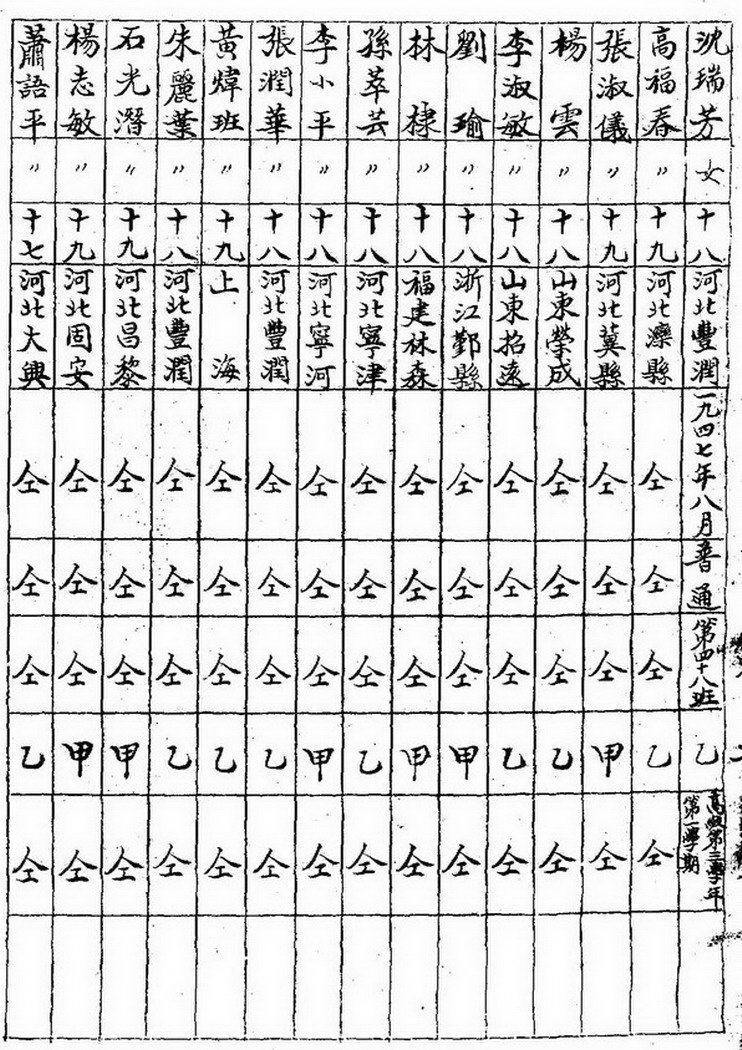 沈瑞芳 女 十八 河北豐潤 一九四七年八月 普通 第四十八班 乙 高級第三學年第一學期
高福春 〃 十九 河北灤縣 仝 仝 仝 乙 仝
張淑儀 〃 十九 河北冀縣 仝 仝 仝 甲 仝
楊雲 〃 十八 山東榮成 仝 仝 仝 乙 仝
李淑敏 〃 十八 山東招遠 仝 仝 仝 乙 仝
劉瑜 〃 十八 浙江鄞縣 仝 仝 仝 甲 仝
林棣 〃 十八 福建林森 仝 仝 仝 甲 仝
孫萃芸 〃 十八 河北寧津 仝 仝 仝 乙 仝
李小平 〃 十八 河北寧河 仝 仝 仝 甲 仝
張潤華 〃 十八 河北豐潤 仝 仝 仝 乙 仝
黃煒班 〃 十九 上海 仝 仝 仝 乙 仝
朱麗葉 〃 十八 河北豐潤 仝 仝 仝 乙 仝
石光潛 〃 十九 河北昌黎 仝 仝 仝 甲 仝
楊志敏 〃 十九 河北固安 仝 仝 仝 甲 仝
蕭語平 〃 十七 河北大興 仝 仝 仝 乙 仝